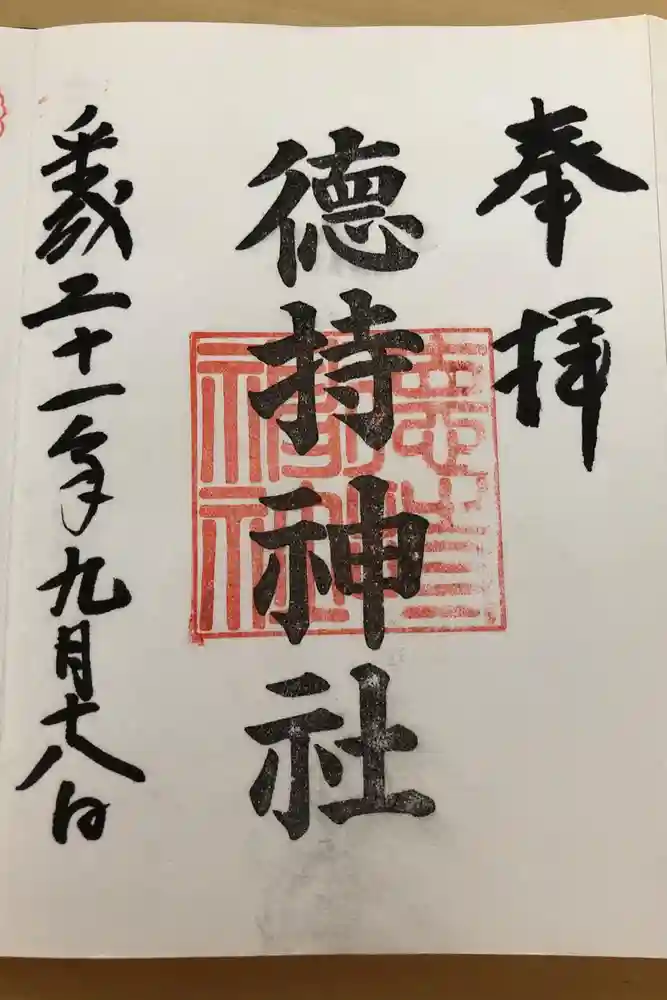 奉拝
德持神社
平成二十一年九月十八日